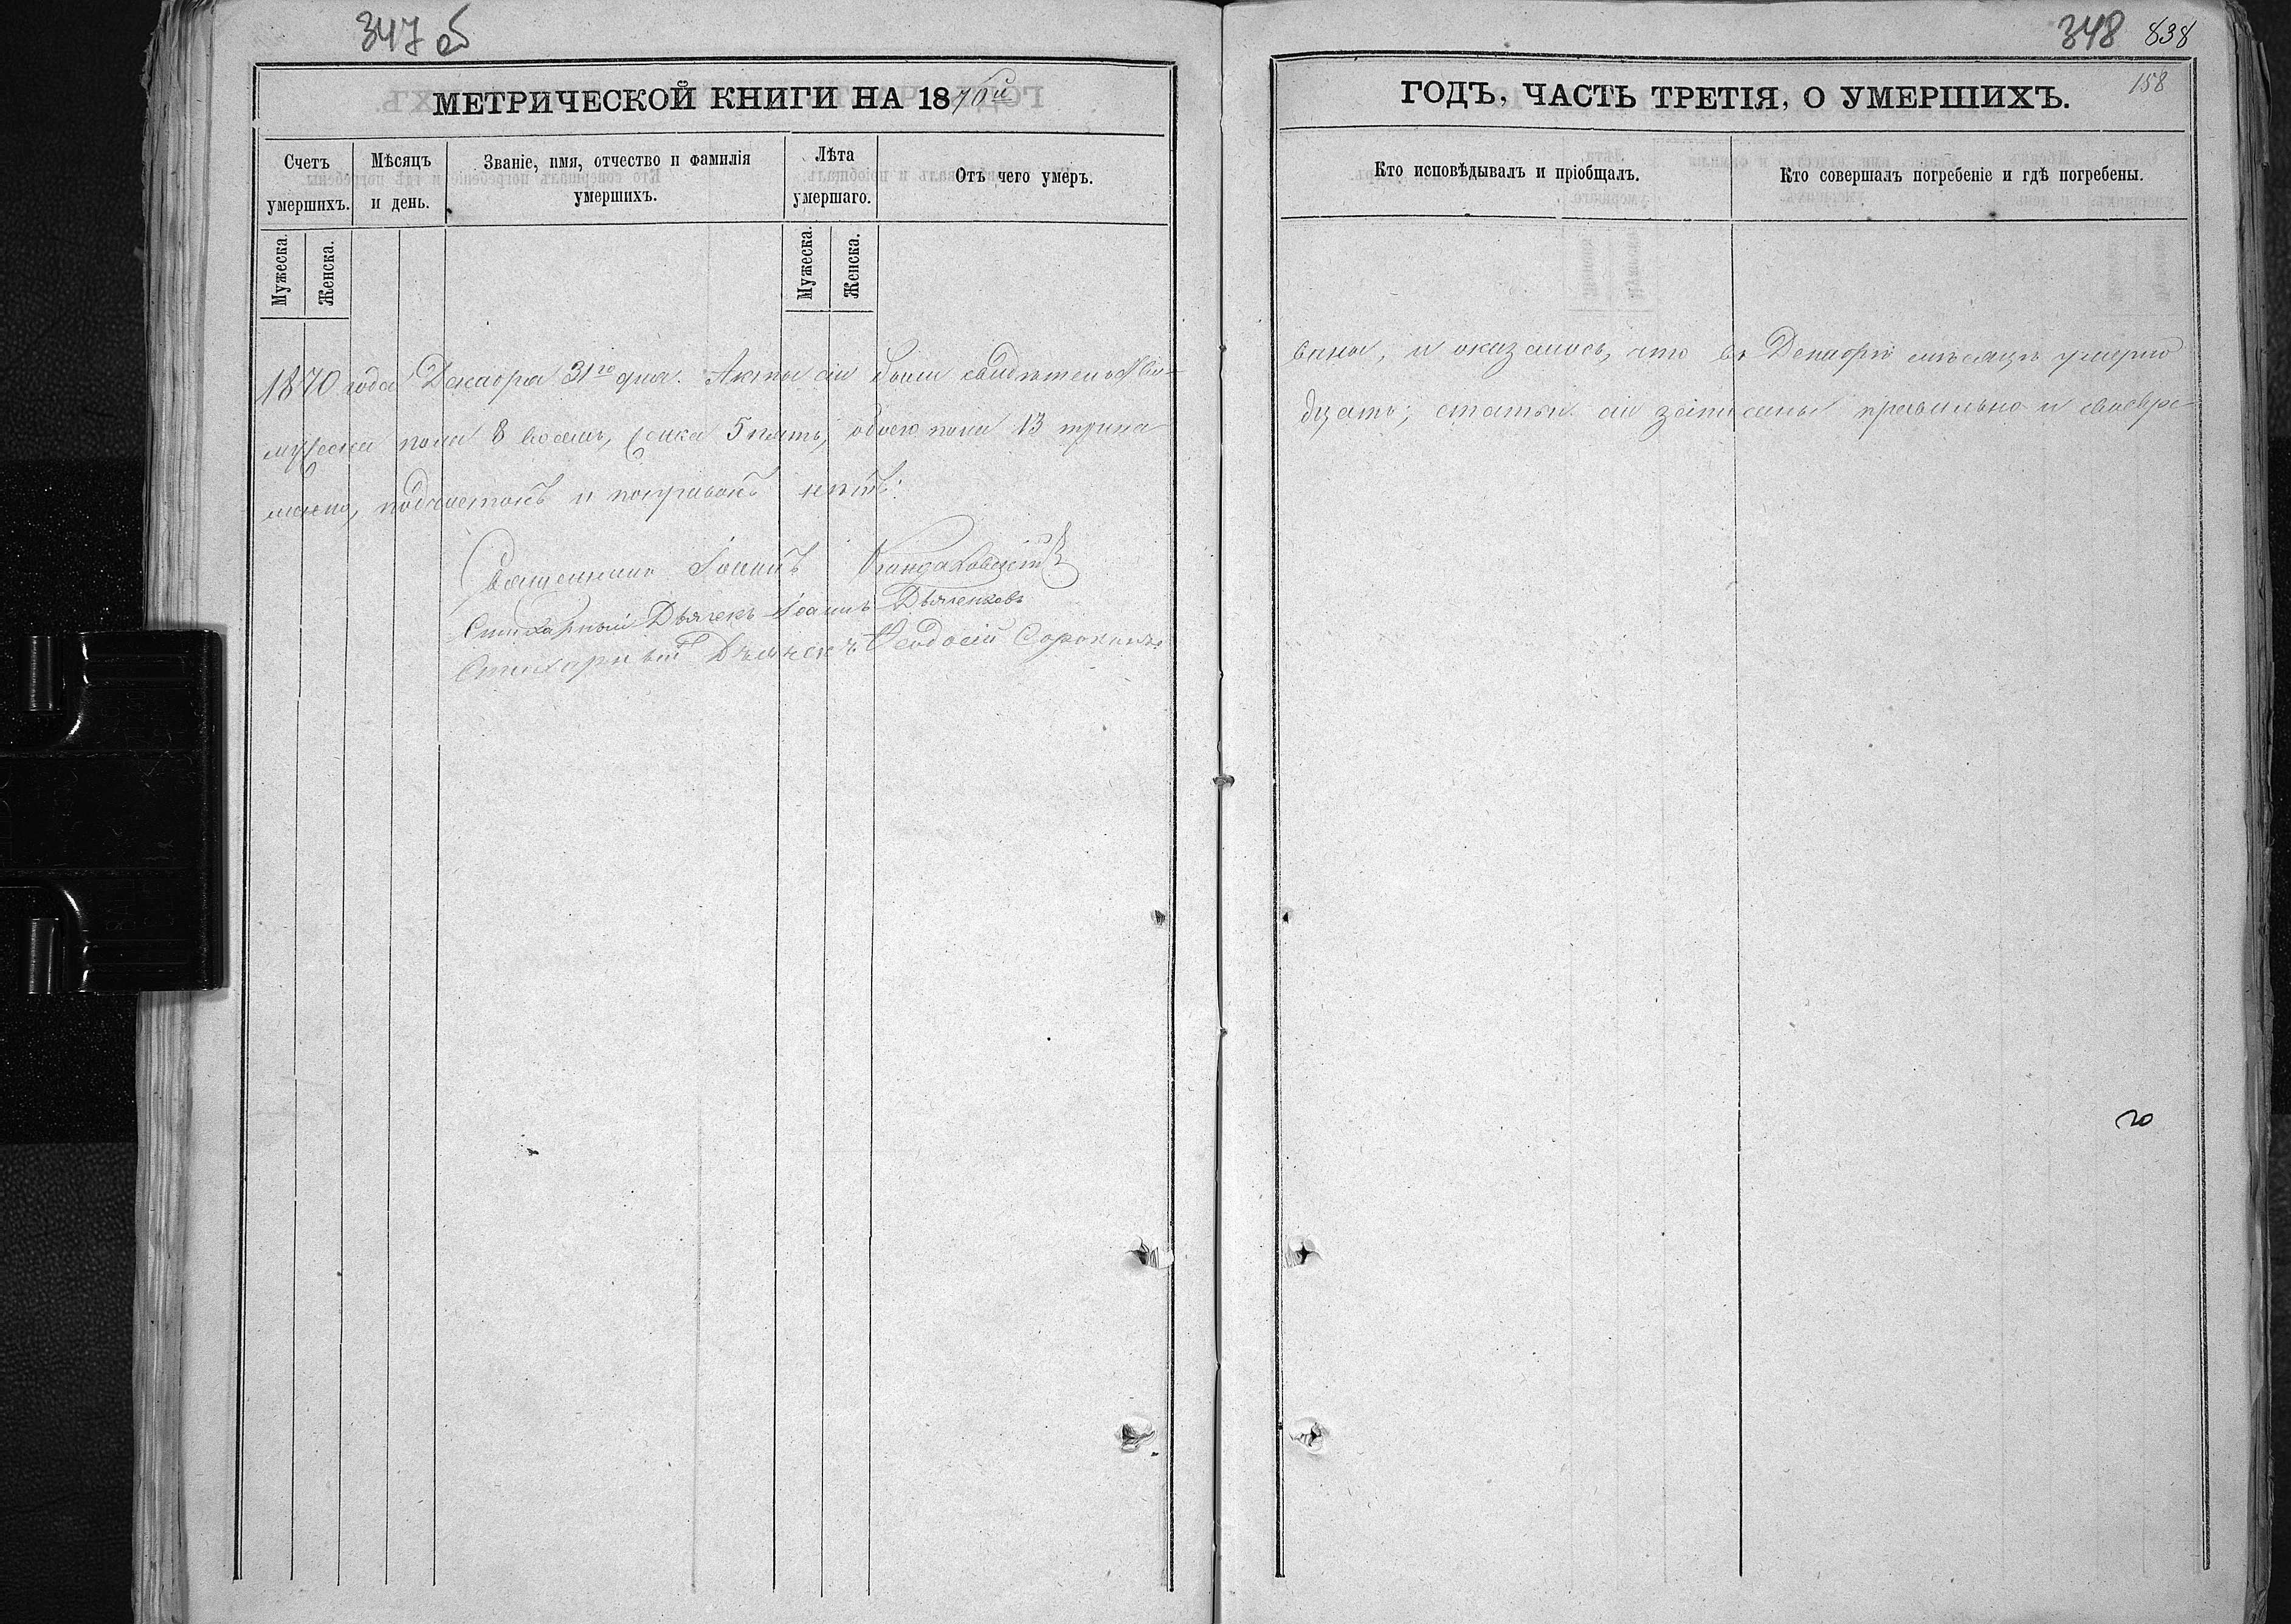 347 об
МЕТРИЧЕСКОЙ КНИГИ НА 1870й
Счетъ умершихъ.
Мѣсяцъ и день.
Званіе, имя, отчество и фамилія умершихъ.
Лѣта умершаго.
Отъ чего умеръ.
Мужеска.
Женска.
Мужеска.
Женска.
1870 года Декабря 31го дня. Акты сіи были свидѣтельство-
мужеска пола 8 восемь, женска 5 пять, обоего пола 13 трина
менно, подчистокъ и поправокъ нѣтъ:
Священникъ Іоаннъ
Стихарный Дьячекъ Іоаннъ Дьяченковъ
Стихарный Дьячекъ Ѳеодосій Сорокинъ
348 838
158
ГОДЪ, ЧАСТЬ ТРЕТІЯ, О УМЕРШИХЪ.
Кто исповѣдывалъ и пріобщалъ.
Кто совершалъ погребеніе и гдѣ погребены.
ваны, и оказалось, что въ Декабрѣ мѣсяцѣ умерло
дцать; статьи сіи записаны правильно и своевре-